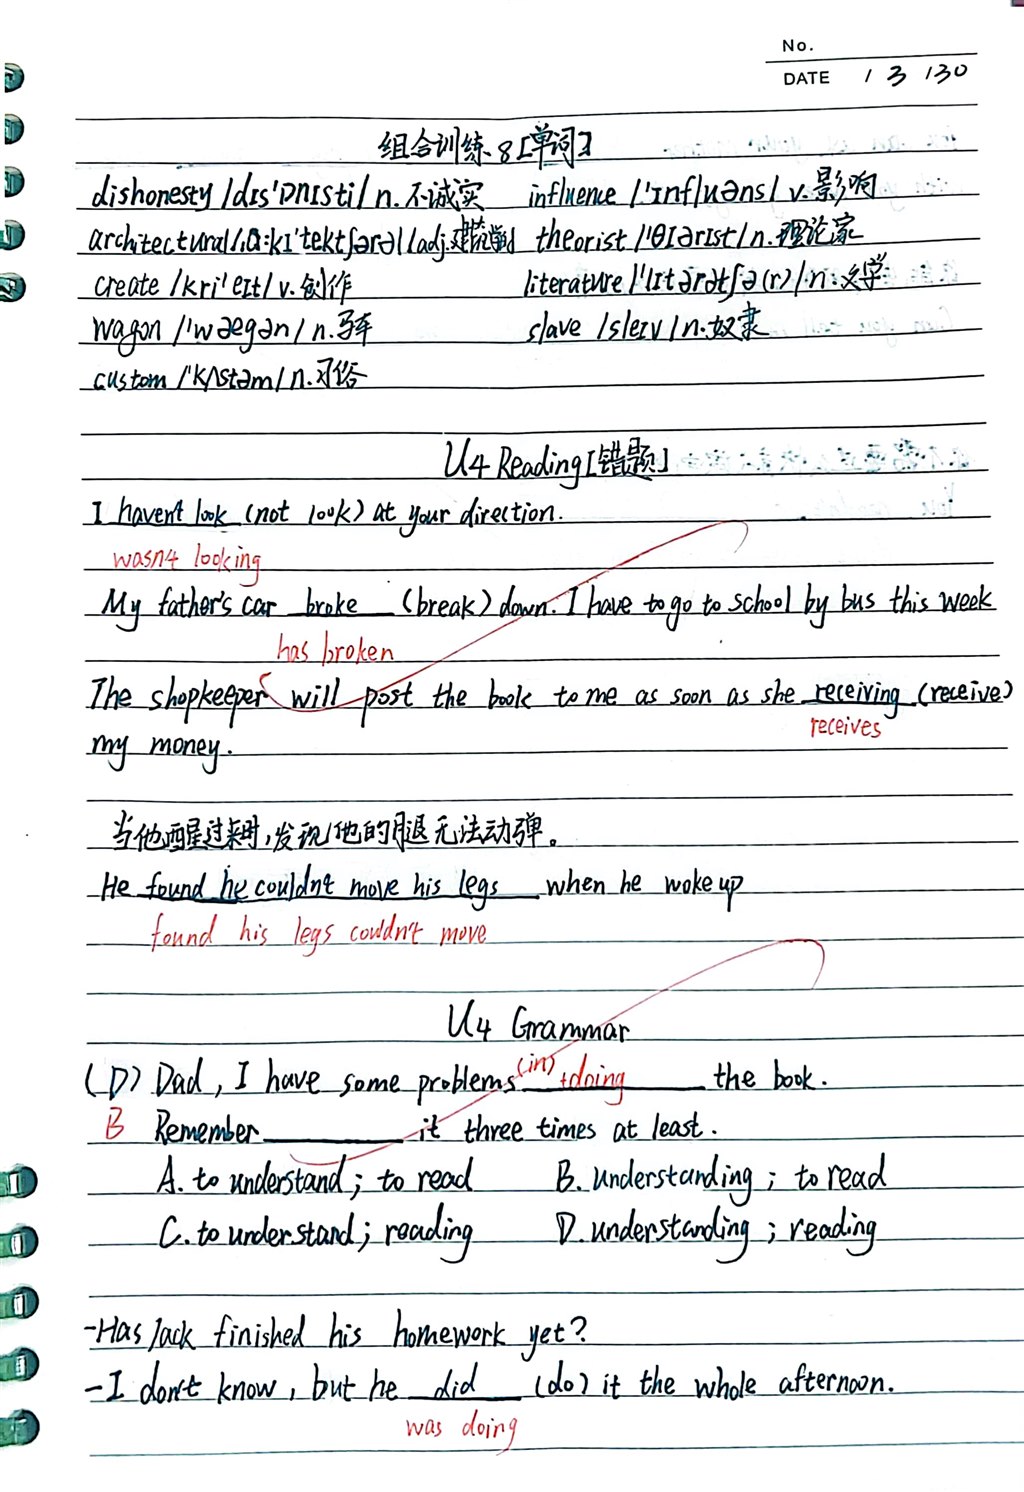 No.
DATE / 3 /30
组合训练8[单词]
dishonesty /dɪs'ɒnɪsti/ n.不诚实 influence /'ɪnfluəns/ v.影响
architectural/ˌɑːkɪ'tektʃərəl/adj.建筑学的 theorist /'θɪərɪst/n.理论家
create /kri'eɪt/ v.创作 literature /'lɪtərətʃə(r)/n.文学
wagon /'wægən/ n.马车 slave /sleɪv/n.奴隶
custom /'kʌstəm/n.习俗
U4 Reading[错题]
I haven't look (not look) at your direction.
wasn't looking
My father's car broke (break) down. I have to go to school by bus this week
has broken
The shopkeeper will post the book to me as soon as she receiving (receive)
receives
my money.
当他醒过来时,发现他的腿无法动弹。
He found he couldn't move his legs when he woke up
found his legs couldn't move
U4 Grammar
(D) Dad, I have some problems (in) +doing the book.
B Remember it three times at least.
A. to understand; to read B. understanding; to read
C. to understand; reading D. understanding; reading
-Has Jack finished his homework yet?
-I don't know, but he did (do) it the whole afternoon.
was doing